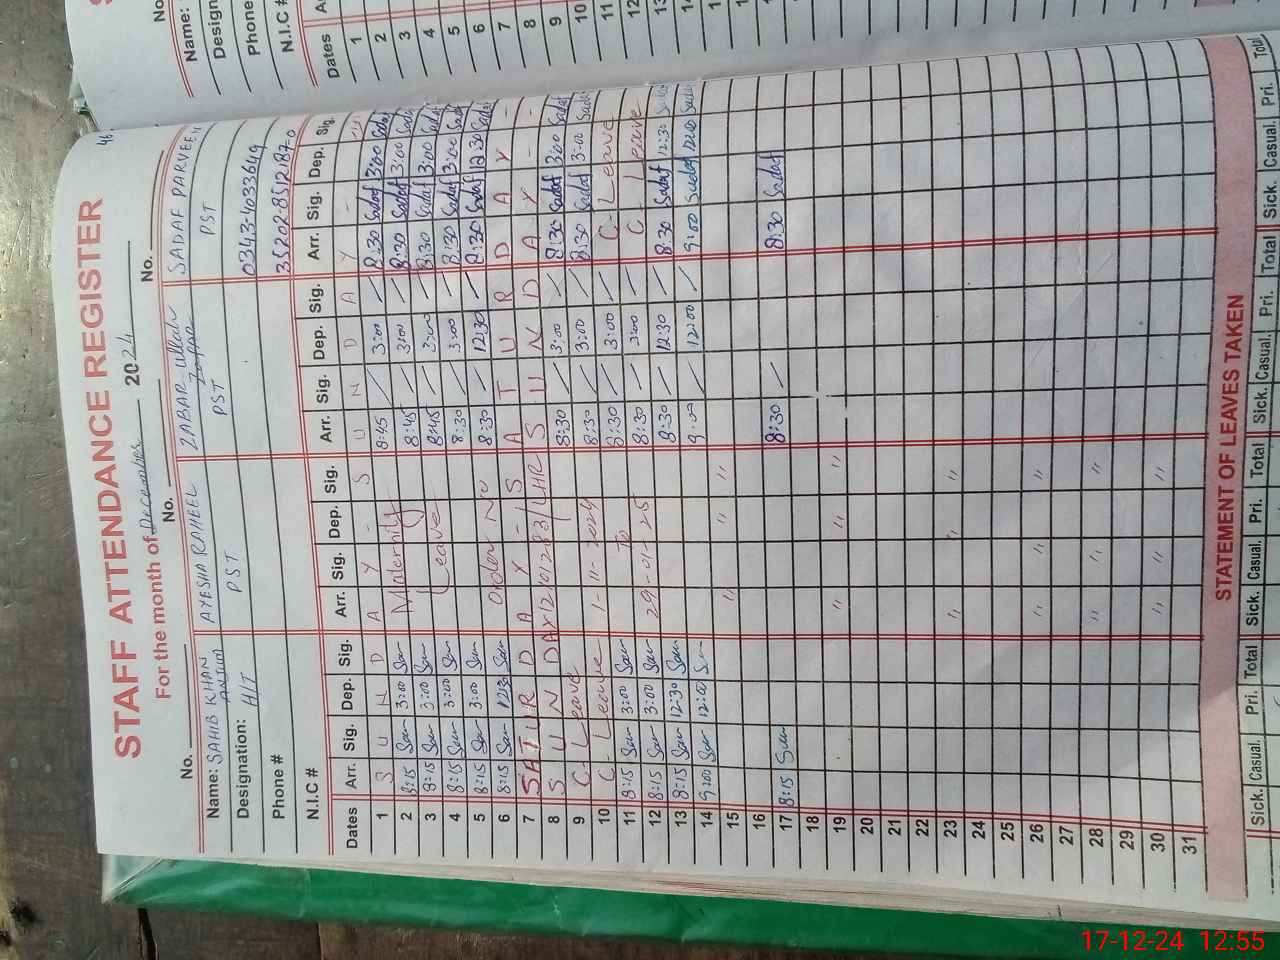 46.
STAFF ATTENDANCE REGISTER
For the month of December 2024
No. No. No.
Name: SAHIB KHAN AYESHA RAHEEL ZABAR ullah SADAF PARVEEN
Zafar
Designation: H/T PST PST PST
Phone # 0343-4033649
N.I.C # 35202-8512187-0
Dates Arr. Sig. Dep. Sig. Arr. Sig. Dep. Sig. Arr. Sig. Dep. Sig. Arr. Sig. Dep. Sig.
1 S U N D A Y - S U N D A Y - - -
2 8:15 3:00 Maternity 8:45 / 3:00 / 8:30 Sadaf 3:00 Sadaf
3 8:15 3:00 Leave 8:45 / 3:00 / 8:30 Sadaf 3:00 Sadaf
4 8:15 3:00 8:45 / 3:00 / 8:30 Sadaf 3:00 Sadaf
5 8:15 3:00 8:30 / 3:00 / 8:30 Sadaf 3:00 Sadaf
6 8:15 12:30 Order No 8:30 / 12:30 / 8:30 Sadaf 12:30 Sadaf
7 S A T U R D A Y - S A T U R D A Y -
8 S U N D A Y 1201283/LHR S U N D A Y - -
9 C. Leave 8:30 / 3:00 / 8:30 Sadaf 3:00 Sadaf
10 C. Leave 1-11-2024 8:30 / 3:00 / 8:30 Sadaf 3:00 Sadaf
11 8:15 3:00 To 8:30 / 3:00 / C. Leave
12 8:15 3:00 29-01-25 8:30 / 3:00 / C. Leave
13 8:15 12:30 8:30 / 12:30 / 8:30 Sadaf 12:30 Sadaf
14 9:00 12:00 9:00 / 12:00 / 9:00 Sadaf 12:00 Sadaf
15 " " "
16
17 8:15 8:30 / 8:30 Sadaf
18
19 " " "
20
21
22
23 " " "
24
25
26 " " "
27
28 " " "
29
30 " " "
31
STATEMENT OF LEAVES TAKEN
Sick. Casual. Pri. Total Sick. Casual. Pri. Total Sick. Casual. Pri. Total Sick. Casual. Pri. Total
No.
Name:
Design
Phone
N.I.C #
Dates Ar
1
2
3
4
5
6
7
8
9
10
11
12
13
14
17-12-24 12:55